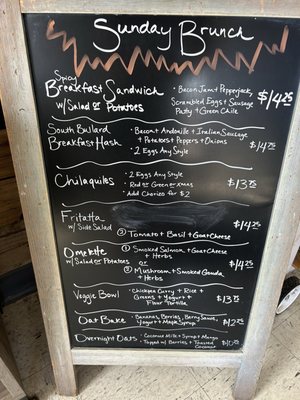 Sunday Brunch
Spicy
Breakfast Sandwich
w/ Salad or Potatoes
• Bacon Jam + Pepperjack,
Scrambled Eggs + Sausage
Patty + Green Chile
$14.25
South Bullard
Breakfast Hash
• Bacon + Andouille + Italian Sausage
+ Potatoes + Peppers + Onions
• 2 Eggs Any Style
$14.25
Chilaquiles
• 2 Eggs Any Style
• Red or Green or Xmas
• Add Chorizo for $2
$13.25
Fritatta
w/ Side Salad
② Tomato + Basil + Goat Cheese
$14.25
Omelette
w/ Salad or Potatoes
① Smoked Salmon + Goat Cheese
+ Herbs
or
② Mushroom + Smoked Gouda
+ Herbs
$14.25
Veggie Bowl
• Chickpea Curry + Rice +
Greens + Yogurt +
Flour Tortilla
Oat Bake
• Bananas, Berries, Berry Sauce,
Yogurt + Maple Syrup
Overnight Oats
• Coconut Milk + Syrup + Mango
• Topped w/ Berries + Toasted
Coconut